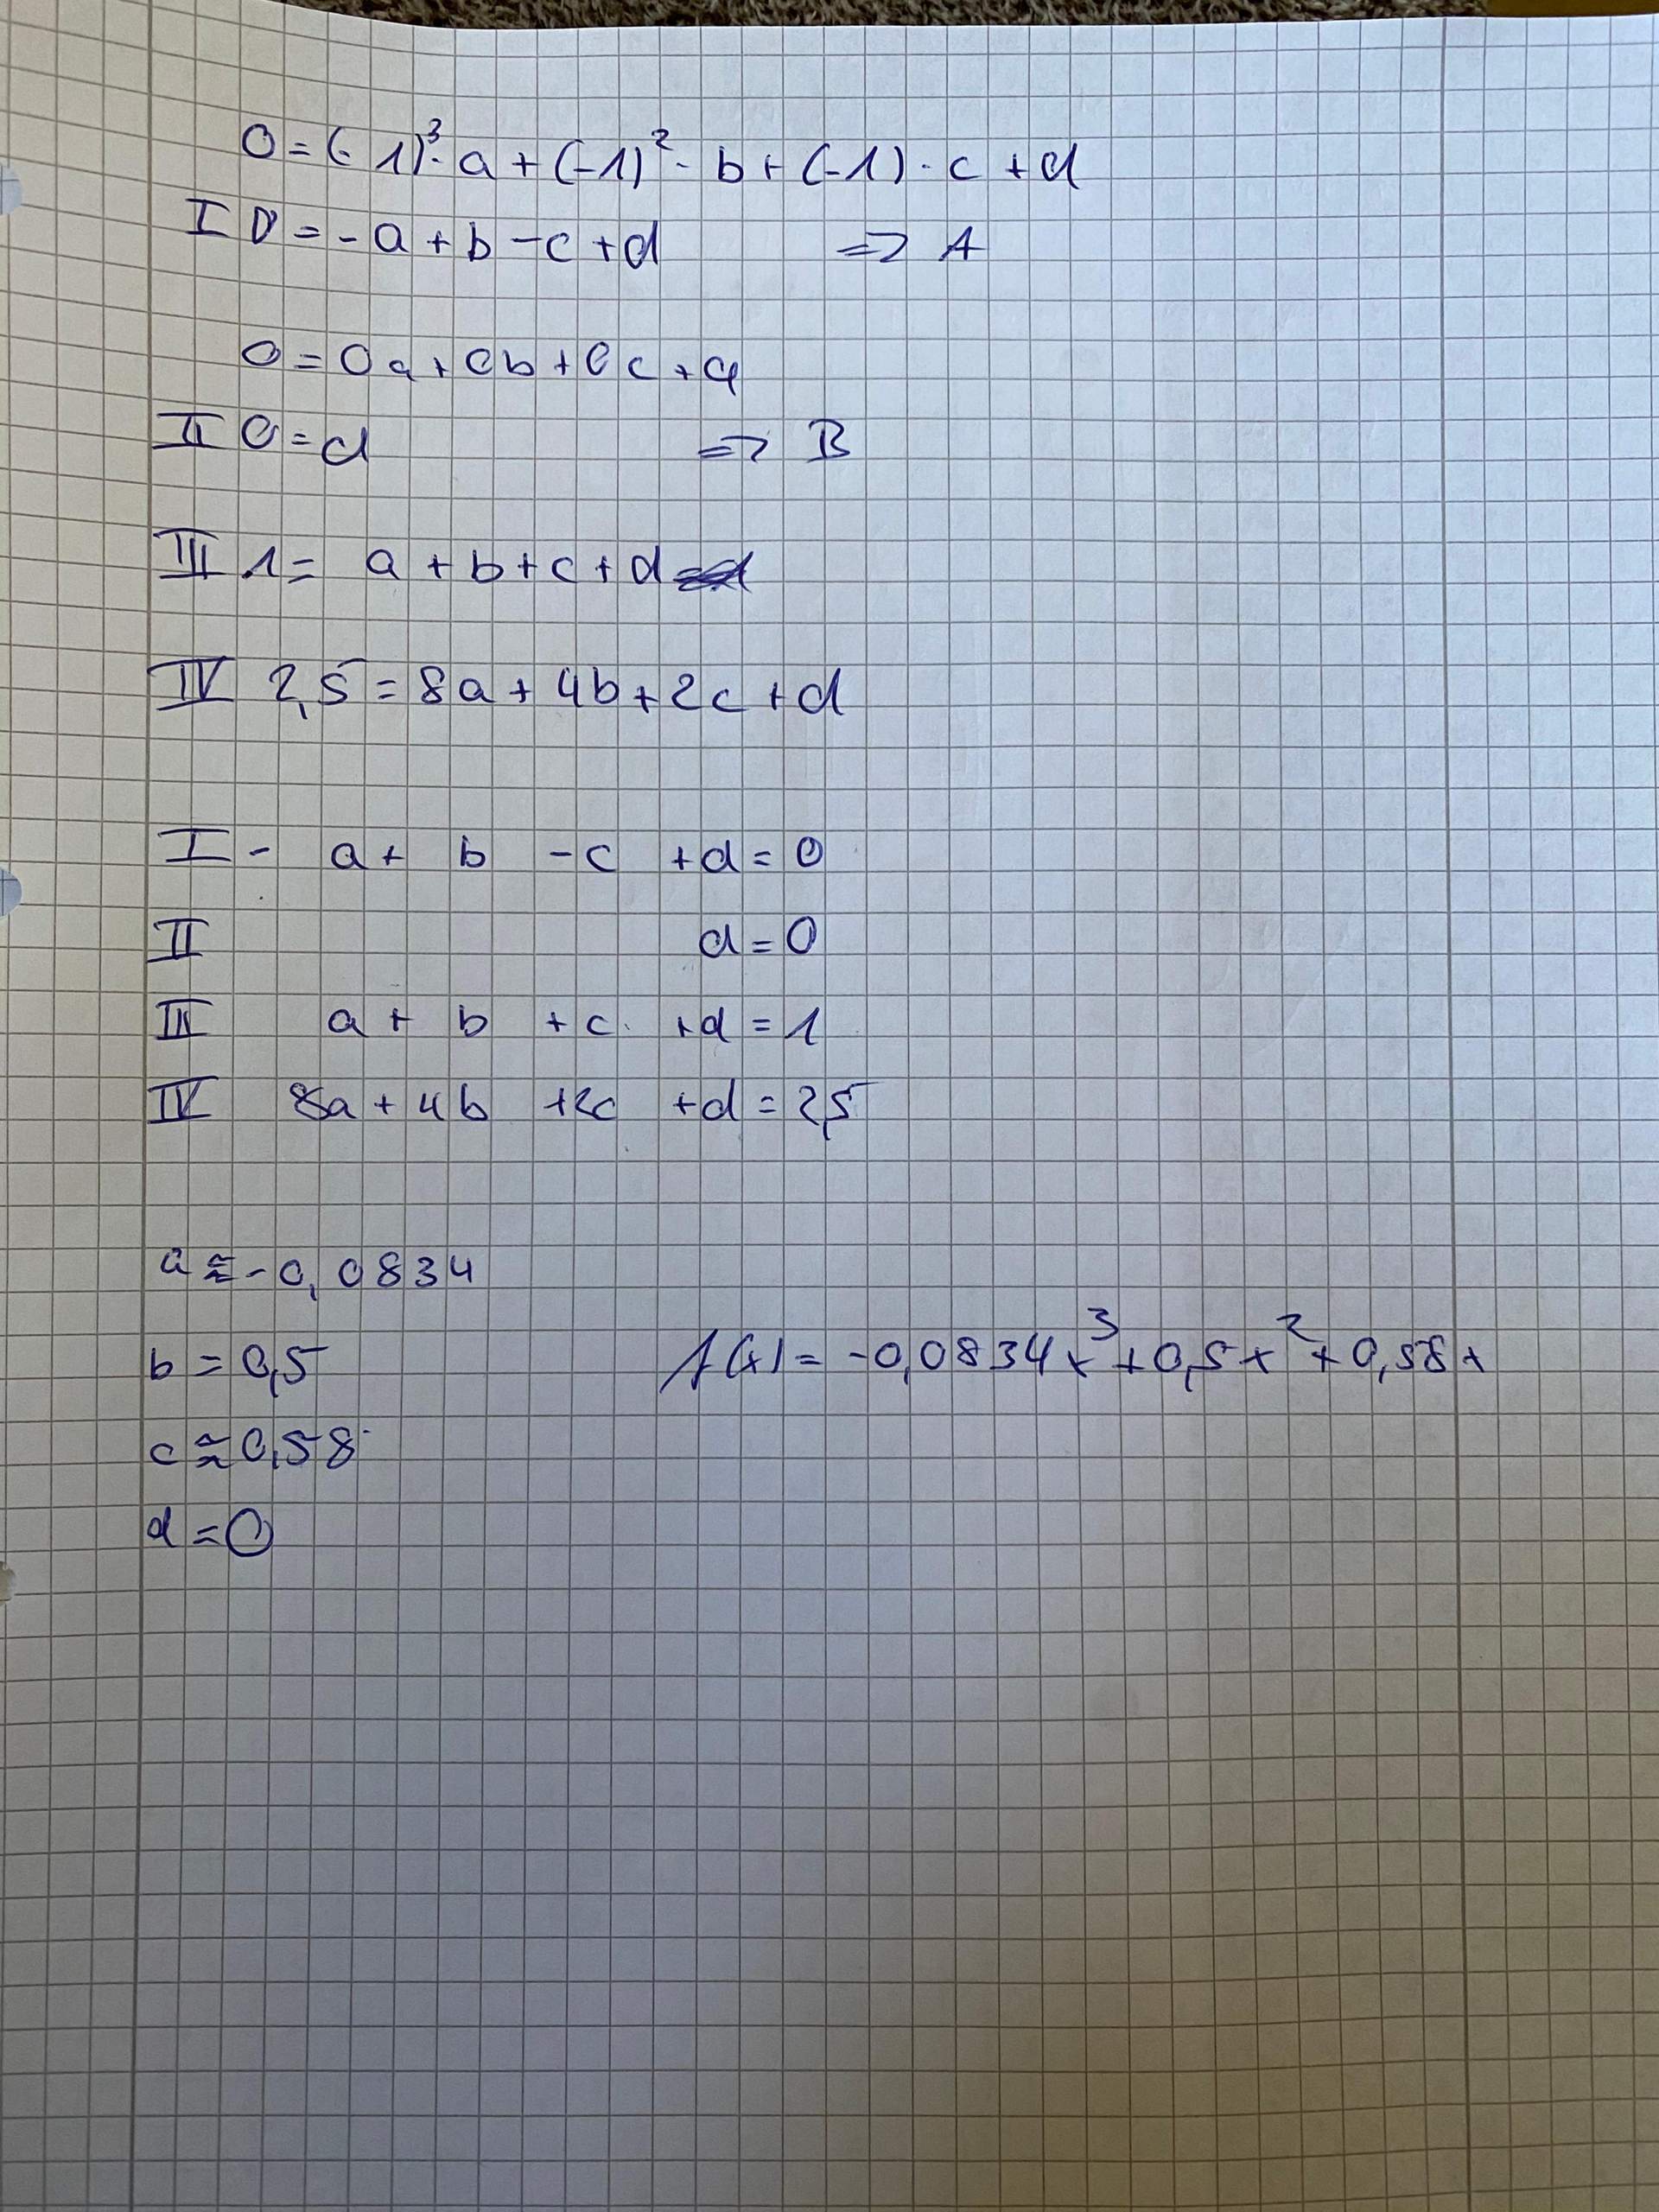 0 = (-1)³· a + (-1)² · b + (-1) · c + d
I 0 = -a + b - c + d => A
0 = 0a + 0b + 0c + d
II 0 = d => B
III 1 = a + b + c + d
IV 2,5 = 8a + 4b + 2c + d
I - a + b - c + d = 0
II d = 0
III a + b + c + d = 1
IV 8a + 4b + 2c + d = 2,5
a ≈ -0,0834
b = 0,5 f(x) = -0,0834x³ + 0,5x² + 0,58x
c ≈ 0,58
d = 0